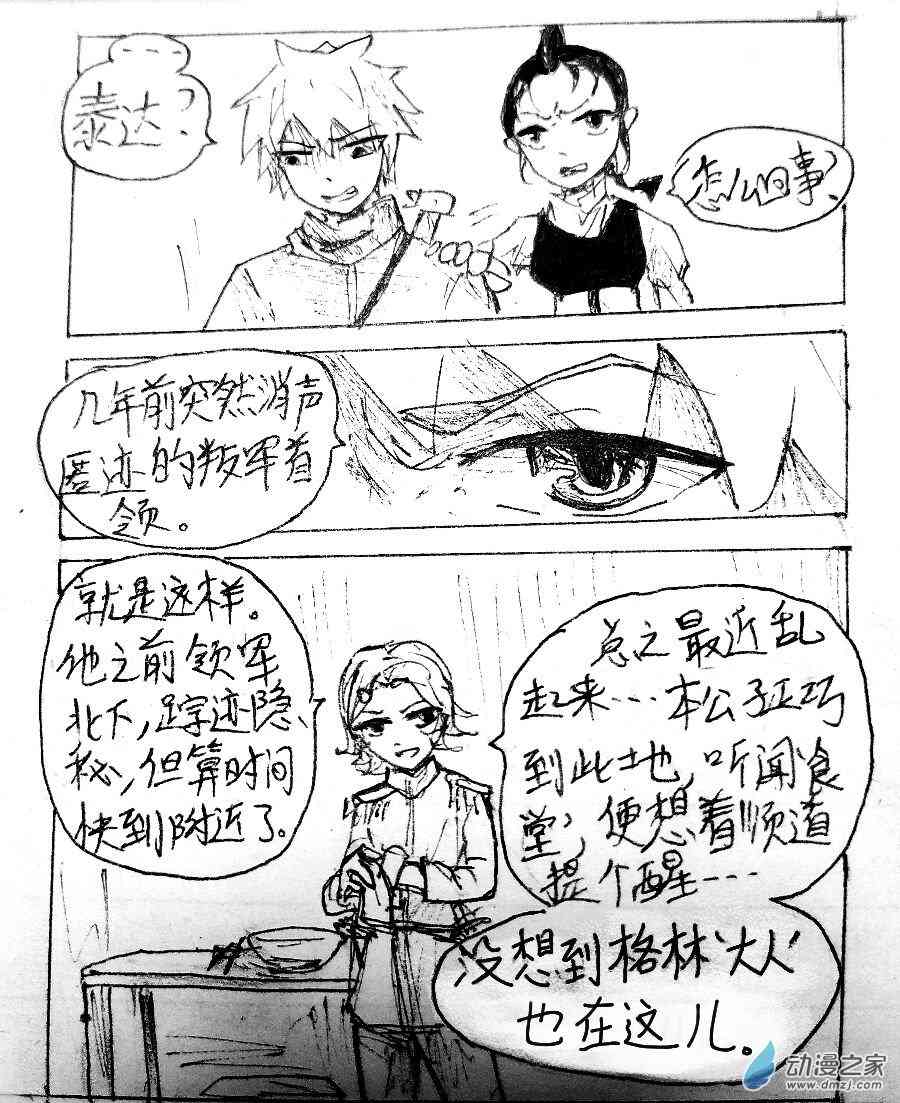 ---
泰达?
怎么回事?
几年前突然消声
匿迹的叛军首
领。
就是这样。
他之前领军
北下,踪迹隐
秘,但算时间
快到附近了。
总之最近乱
起来---本公子正巧
到此地,听闻食
堂,便想着顺道
提个醒----
没想到格林"大人"
也在这儿。
动漫之家
www.dmzj.com